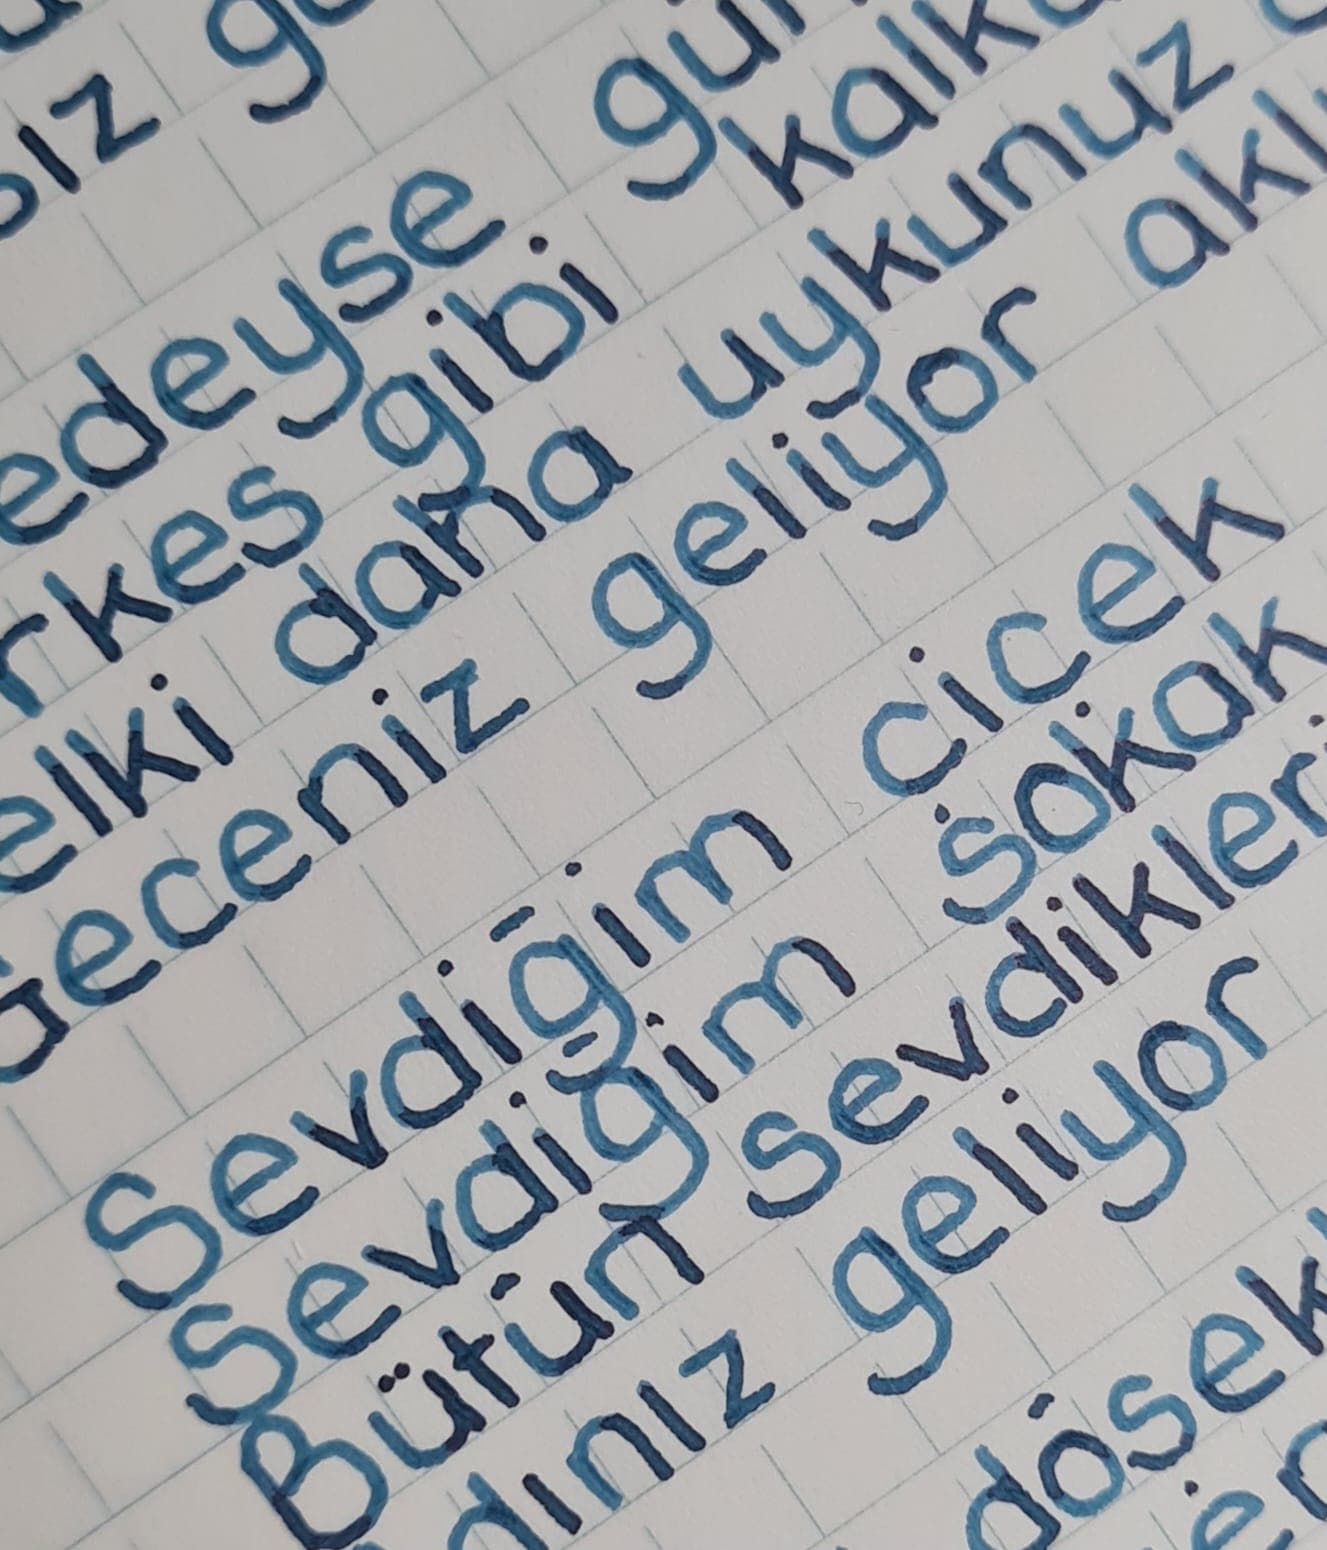 ız g
edeyse gü
rkes gibi kalk
elki daha uykunuz
Geceniz geliyor akl
Sevdiğim cicek
Sevdiğim sokak
Bütün sevdikleri
dınız geliyor
dösek